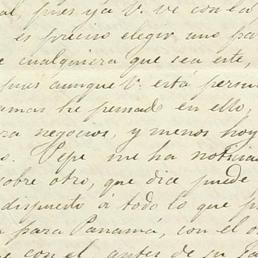 al, pues ya V. ve con ea
es preciso elegir uno pa
e cualquiera que sea este,
pues aunque V. está persu
amas he pensad en ello,
ra negocios, y menos hoy
o. Pepe me ha noticia
sobre otro, que dice puede
dispuesto á todo lo que p
para Panamá, con el o
e con el antes de su